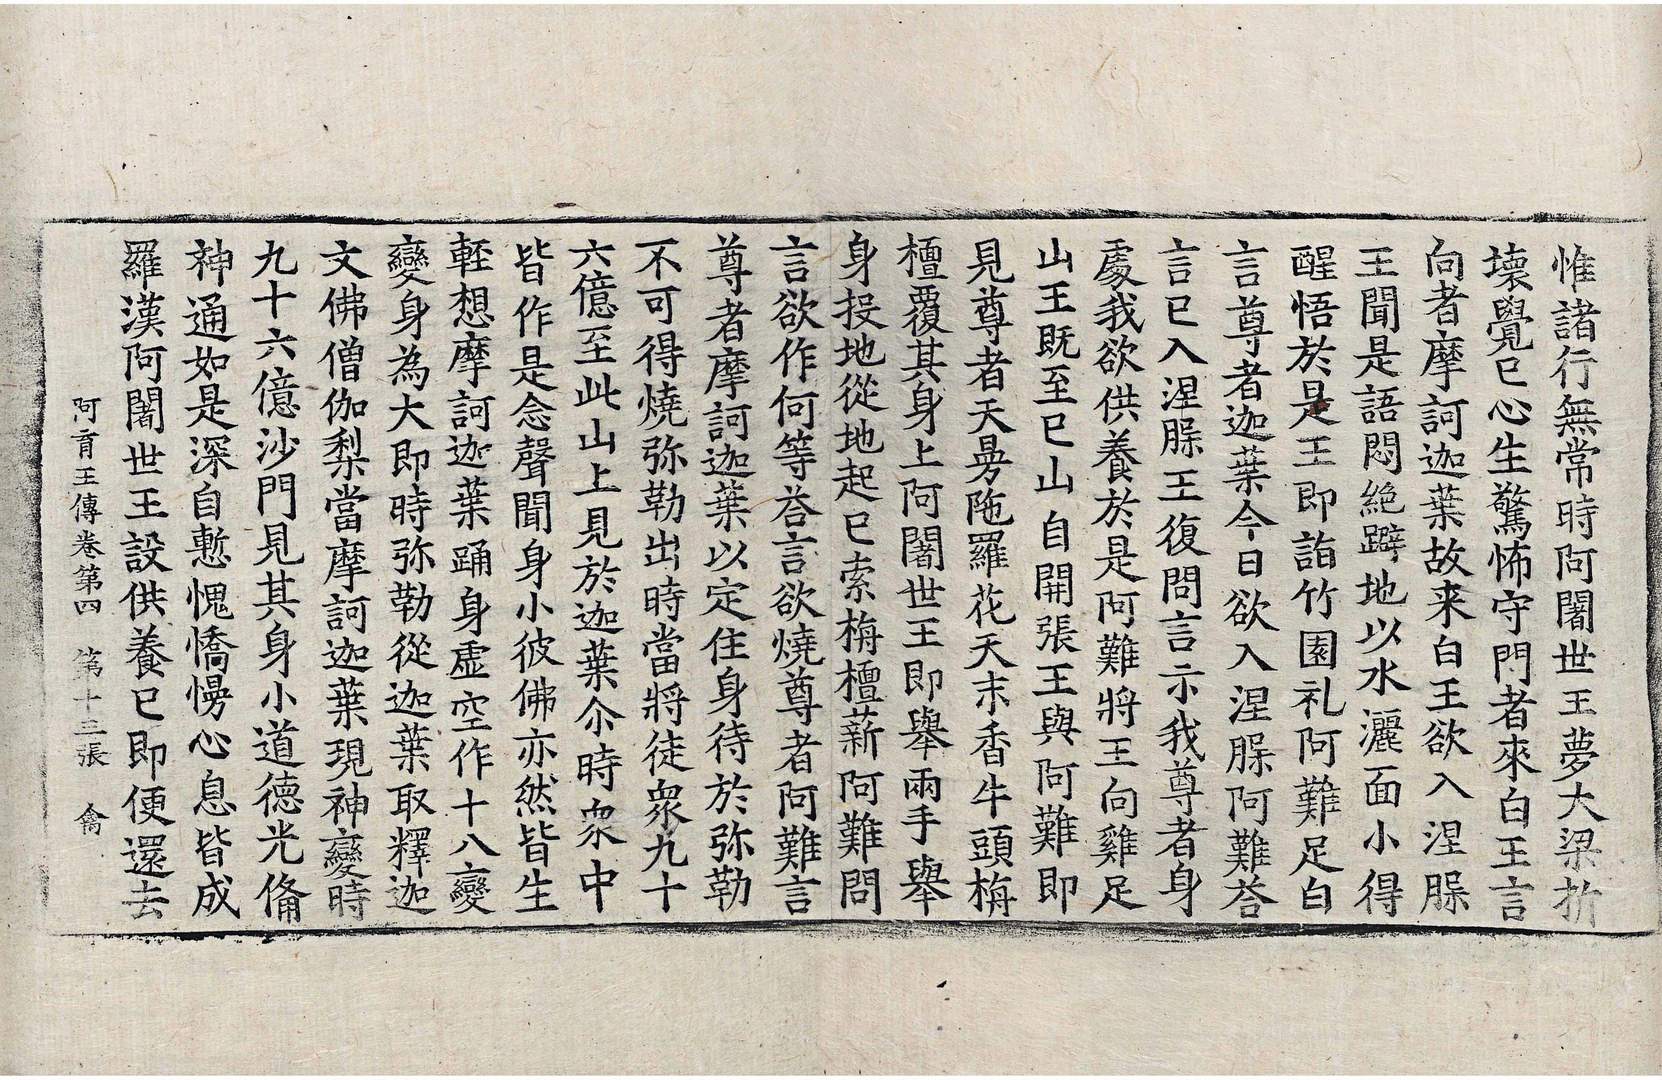 惟諸行無常時阿闍世王夢大梁折
壞覺已心生驚怖守門者來白王言
向者摩訶迦葉故来白王欲入涅𣵀
王聞是語悶絶躃地以水灑面小得
醒悟於是王即詣竹園礼阿難足白
言尊者迦葉今日欲入涅𣵀阿難荅
言已入涅𣵀王復問言示我尊者身
處我欲供養於是阿難將王向雞足
山王既至已山自開張王與阿難即
見尊者天曼陁羅花天末香牛頭栴
檀覆其身上阿闍世王即舉兩手舉
身投地從地起已索栴檀薪阿難問
言欲作何等荅言欲燒尊者阿難言
尊者摩訶迦葉以定住身待於弥勒
不可得燒弥勒出時當將徒衆九十
六億至此山上見於迦葉尒時衆中
皆作是念聲聞身小彼佛亦然皆生
輕想摩訶迦葉踊身虛空作十八變
變身為大即時弥勒從迦葉取釋迦
文佛僧伽梨當摩訶迦葉現神變時
九十六億沙門見其身小道德光俻
神通如是深自慙愧憍慢心息皆成
羅漢阿闍世王設供養已即便還去
阿育王傳卷第四 第十三張 禽